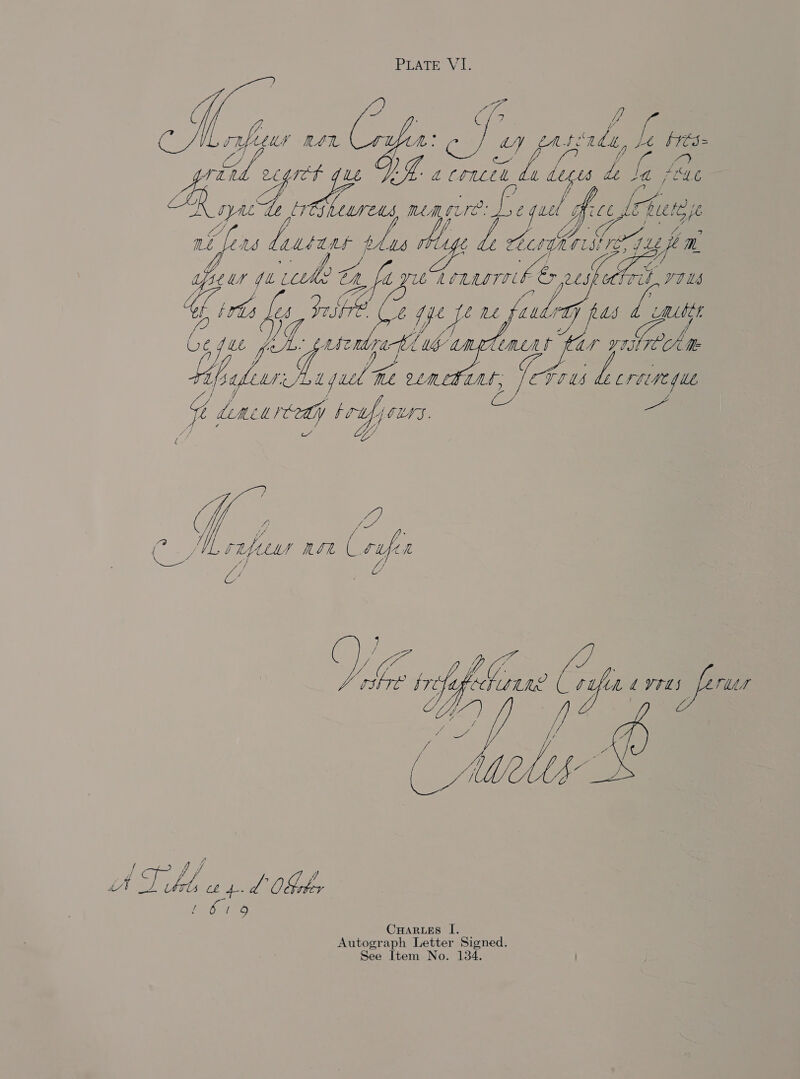 PLATE VI.
Monsieur mon Cousin: J'ay entendu, le tres=
grand regrèt que V.A. a conceu du deçes de la feue
Royne de tresheureuse memoire: Lequel office de pieté je
me sens dautant plus oblige de
qu'icelle en sa vie honnoroit & respectoit vous
et tous les vostre. Ce que je ne faudray pas d'imiter
Ce que V.A. entendra plus amplement par vostre Am=
bassadeur: Auquel me remettant, je vous de croire que
je demeureray tousjours.
Monsieur mon Cousin
Vostre tresaffectionné Cousin a vous seruir
Charles P
ce 4. d'Octobre
1619
CHARLES I.
Autograph Letter Signed.
See Item No. 134.